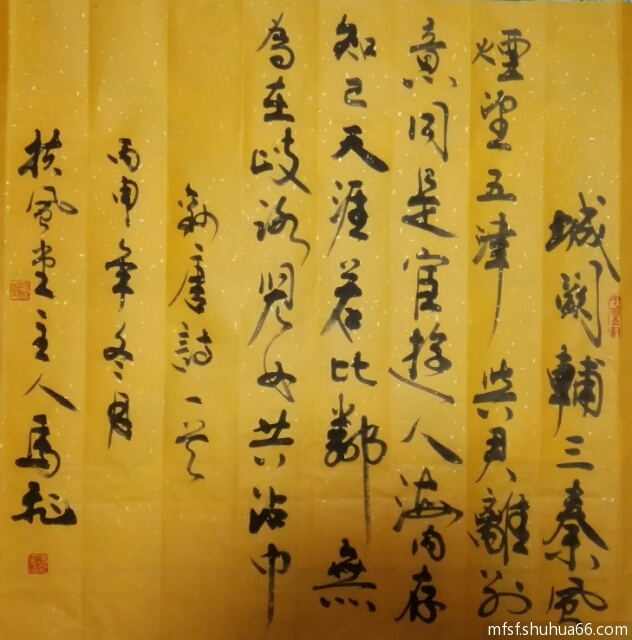 城闕輔三秦風
煙望五津與君離別
意同是宦遊人海内存
知己天涯若比鄰無
為在歧路兒女共沾巾
錄唐詩一首
丙申年冬月
扶風堂主人馬
mfsf.shuhua66.com